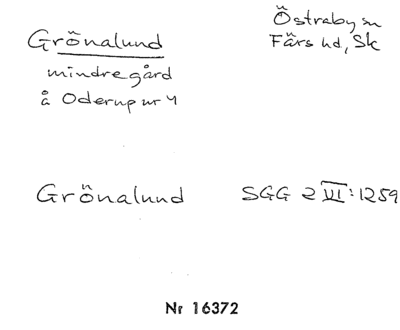 Östraby sn
Grönalund Färs hd, Sk
mindre gård
å Oderup nr 4
Grönalund SGG 2 VII:1259
Nr 16372